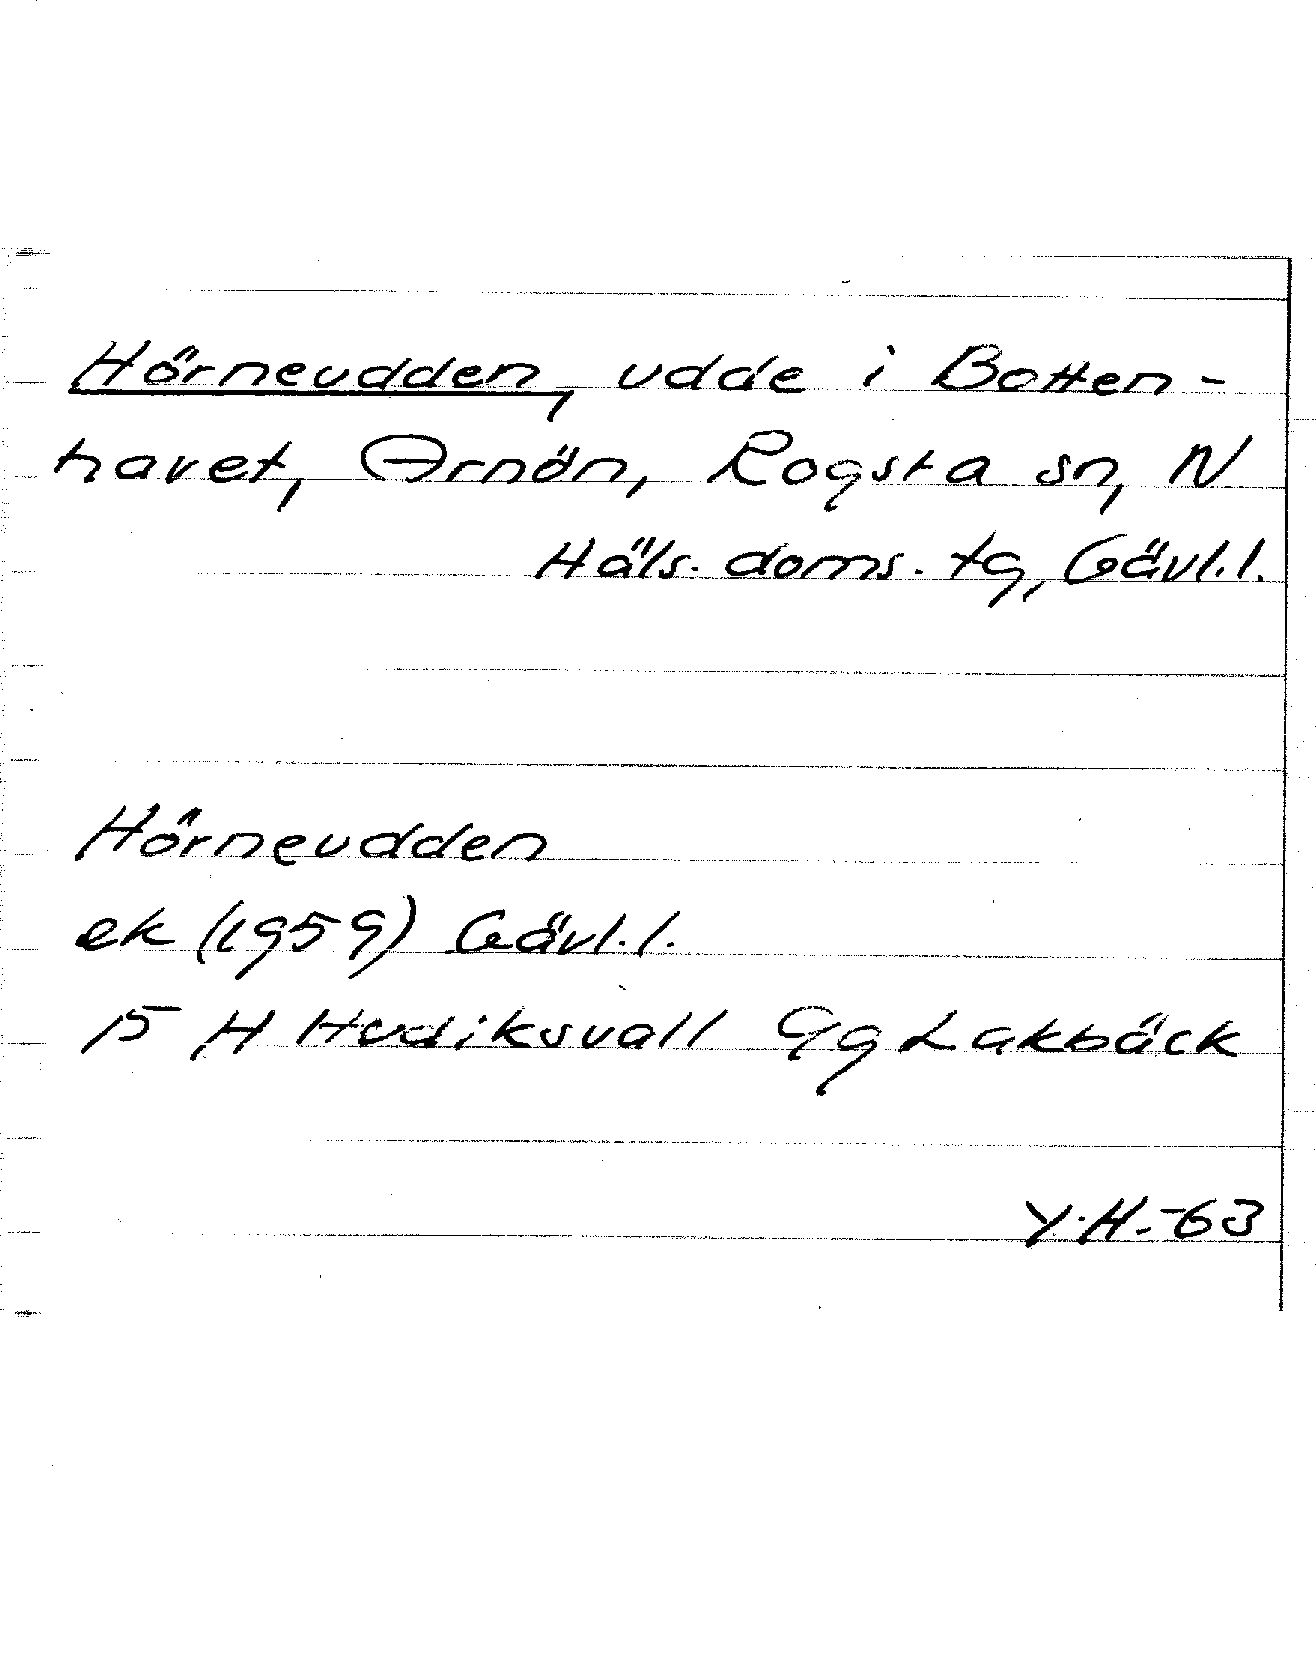 Hörneudden, udde i Botten-
havet, Arnön, Rogsta sn, N
Häls. doms. tg, Gävl.l.
Hörneudden
ek (1959) Gävl.l.
15 H Hudiksvall 9g Lakbäck
Y.H.-63